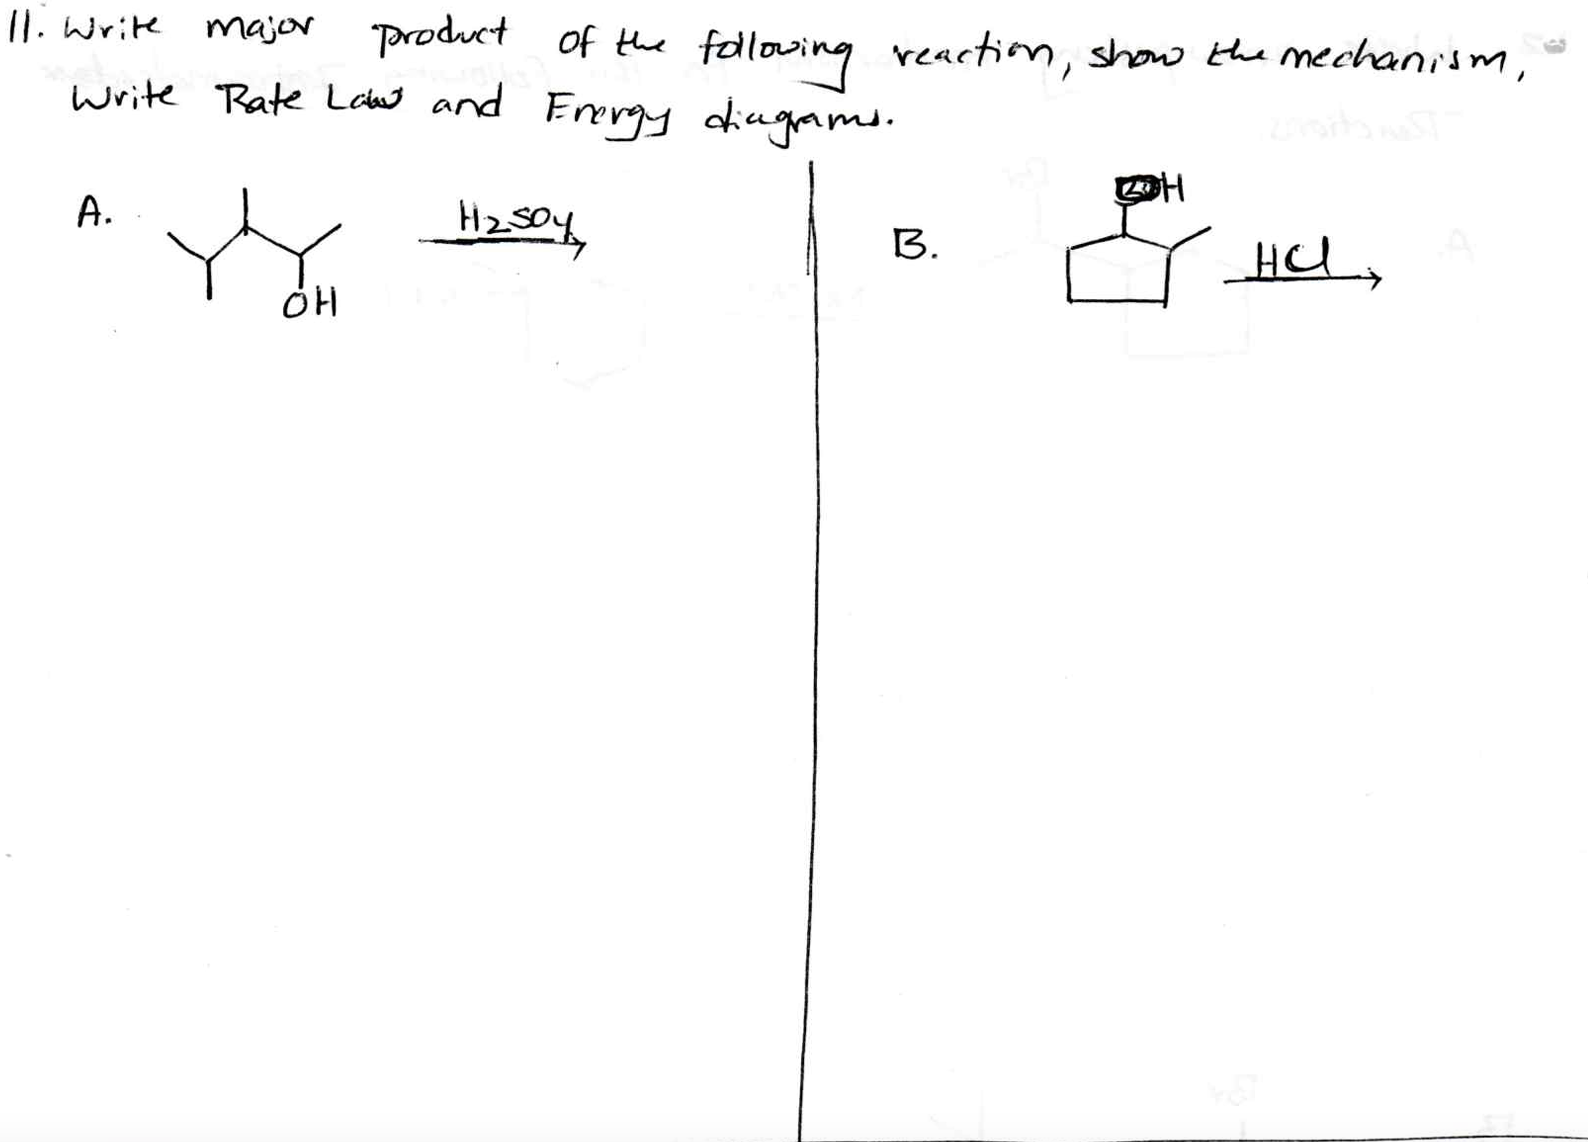 11. Write major product of the following reaction, show the mechanism,
Write Rate Law and Energy diagrams.
A.
H2SO4
OH
B.
OH
HCl